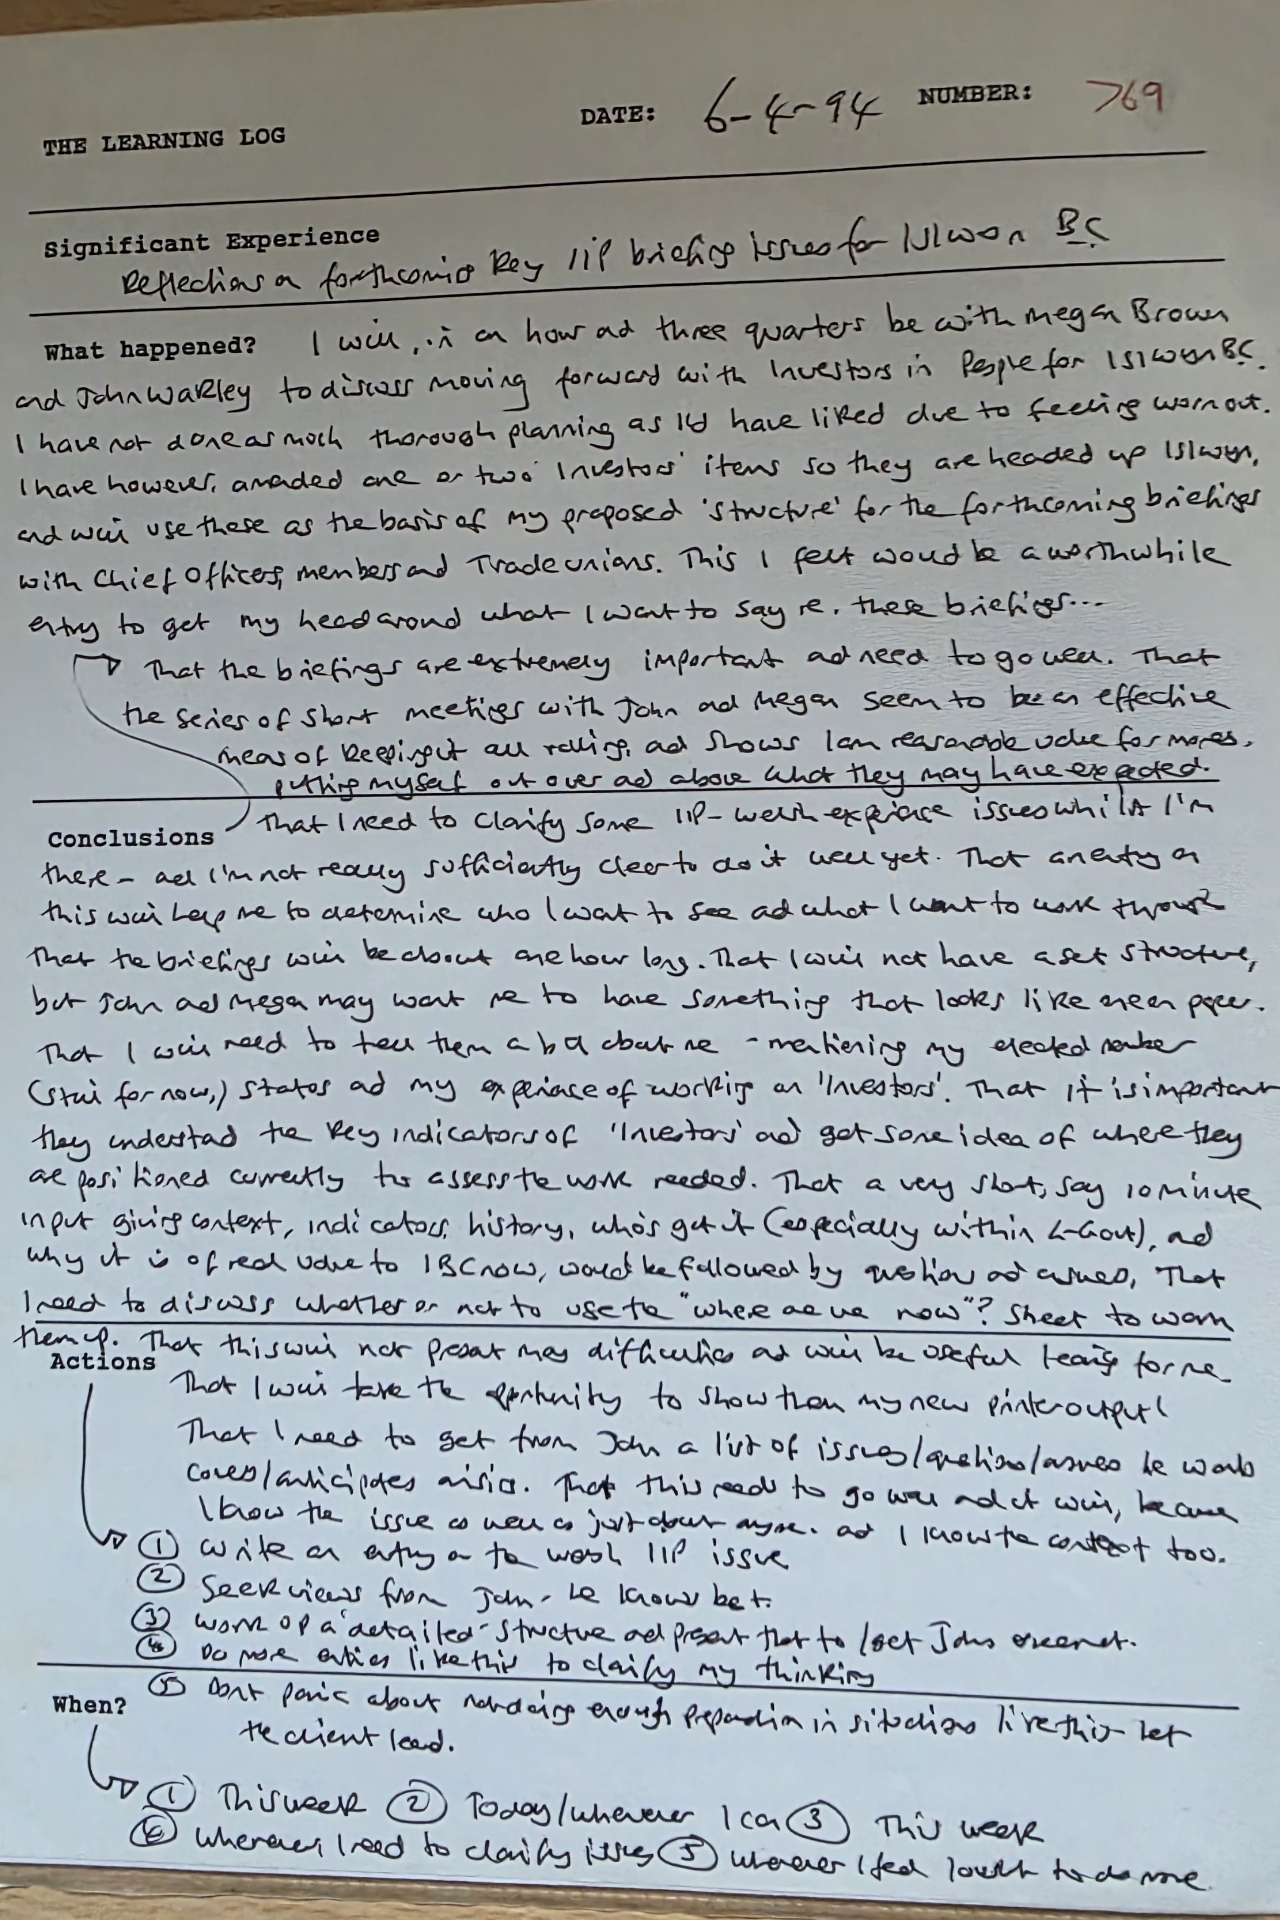 THE LEARNING LOG DATE: 6-4-94 NUMBER: 769
Significant Experience
Reflections on forthcoming key IIP briefing issues for Islwyn BC
What happened? I will, in an hour and three quarters be with Megan Brown
and John Wakley to discuss moving forward with Investors in People for Islwyn BC.
I have not done as much thorough planning as I'd have liked due to feeling worn out.
I have however, amended one or two 'Investors' items so they are headed up Islwyn,
and will use these as the basis of my proposed 'structure' for the forthcoming briefings
with Chief Officers, members and Trade unions. This I felt would be a worthwhile
entry to get my head around what I want to say re. these briefings...
That the briefings are extremely important and need to go well. That
the series of short meetings with John and Megan seem to be an effective
means of keeping it all rolling, and shows I am reasonable value for money,
putting myself out over and above what they may have expected.
Conclusions That I need to clarify some IIP - welsh experience issues whilst I'm
there - and I'm not really sufficiently clear to do it well yet. That an entry on
this will help me to determine who I want to see and what I want to work through
That the briefings will be about one hour long. That I will not have a set structure,
but John and Megan may want me to have something that looks like one on paper.
That I will need to tell them a bit about me - mentioning my elected member
(still for now,) status and my experience of working on 'Investors'. That it is important
they understand the key indicators of 'Investors' and get some idea of where they
are positioned currently to assess the work needed. That a very short, say 10 minute
input giving context, indicators, history, who's got it (especially within L-Govt), and
why it is of real value to IBC now, would be followed by questions and answers, That
I need to discuss whether or not to use the "where are we now"? sheet to warm
them up. That this will not present many difficulties and will be useful learning for me
Actions That I will take the opportunity to show them my new printer output!
That I need to get from John a list of issues/questions/answers he would
covers/anticipates arising. That this needs to go well and it will, because
I know the issue as well as just about anyone. and I know the context too.
① Write an entry on the welsh IIP issue
② Seek views from John - he knows best.
③ Work up a 'detailed' structure and present that to
④ Do more entries like this to clarify my thinking
⑤ Dont panic about not doing enough preparation in situations like this - let
the client lead.
When?
① This week ② Today/whenever I can ③ This week
④ Whenever I need to clarify issues ⑤ whenever I feel I ought to do more.